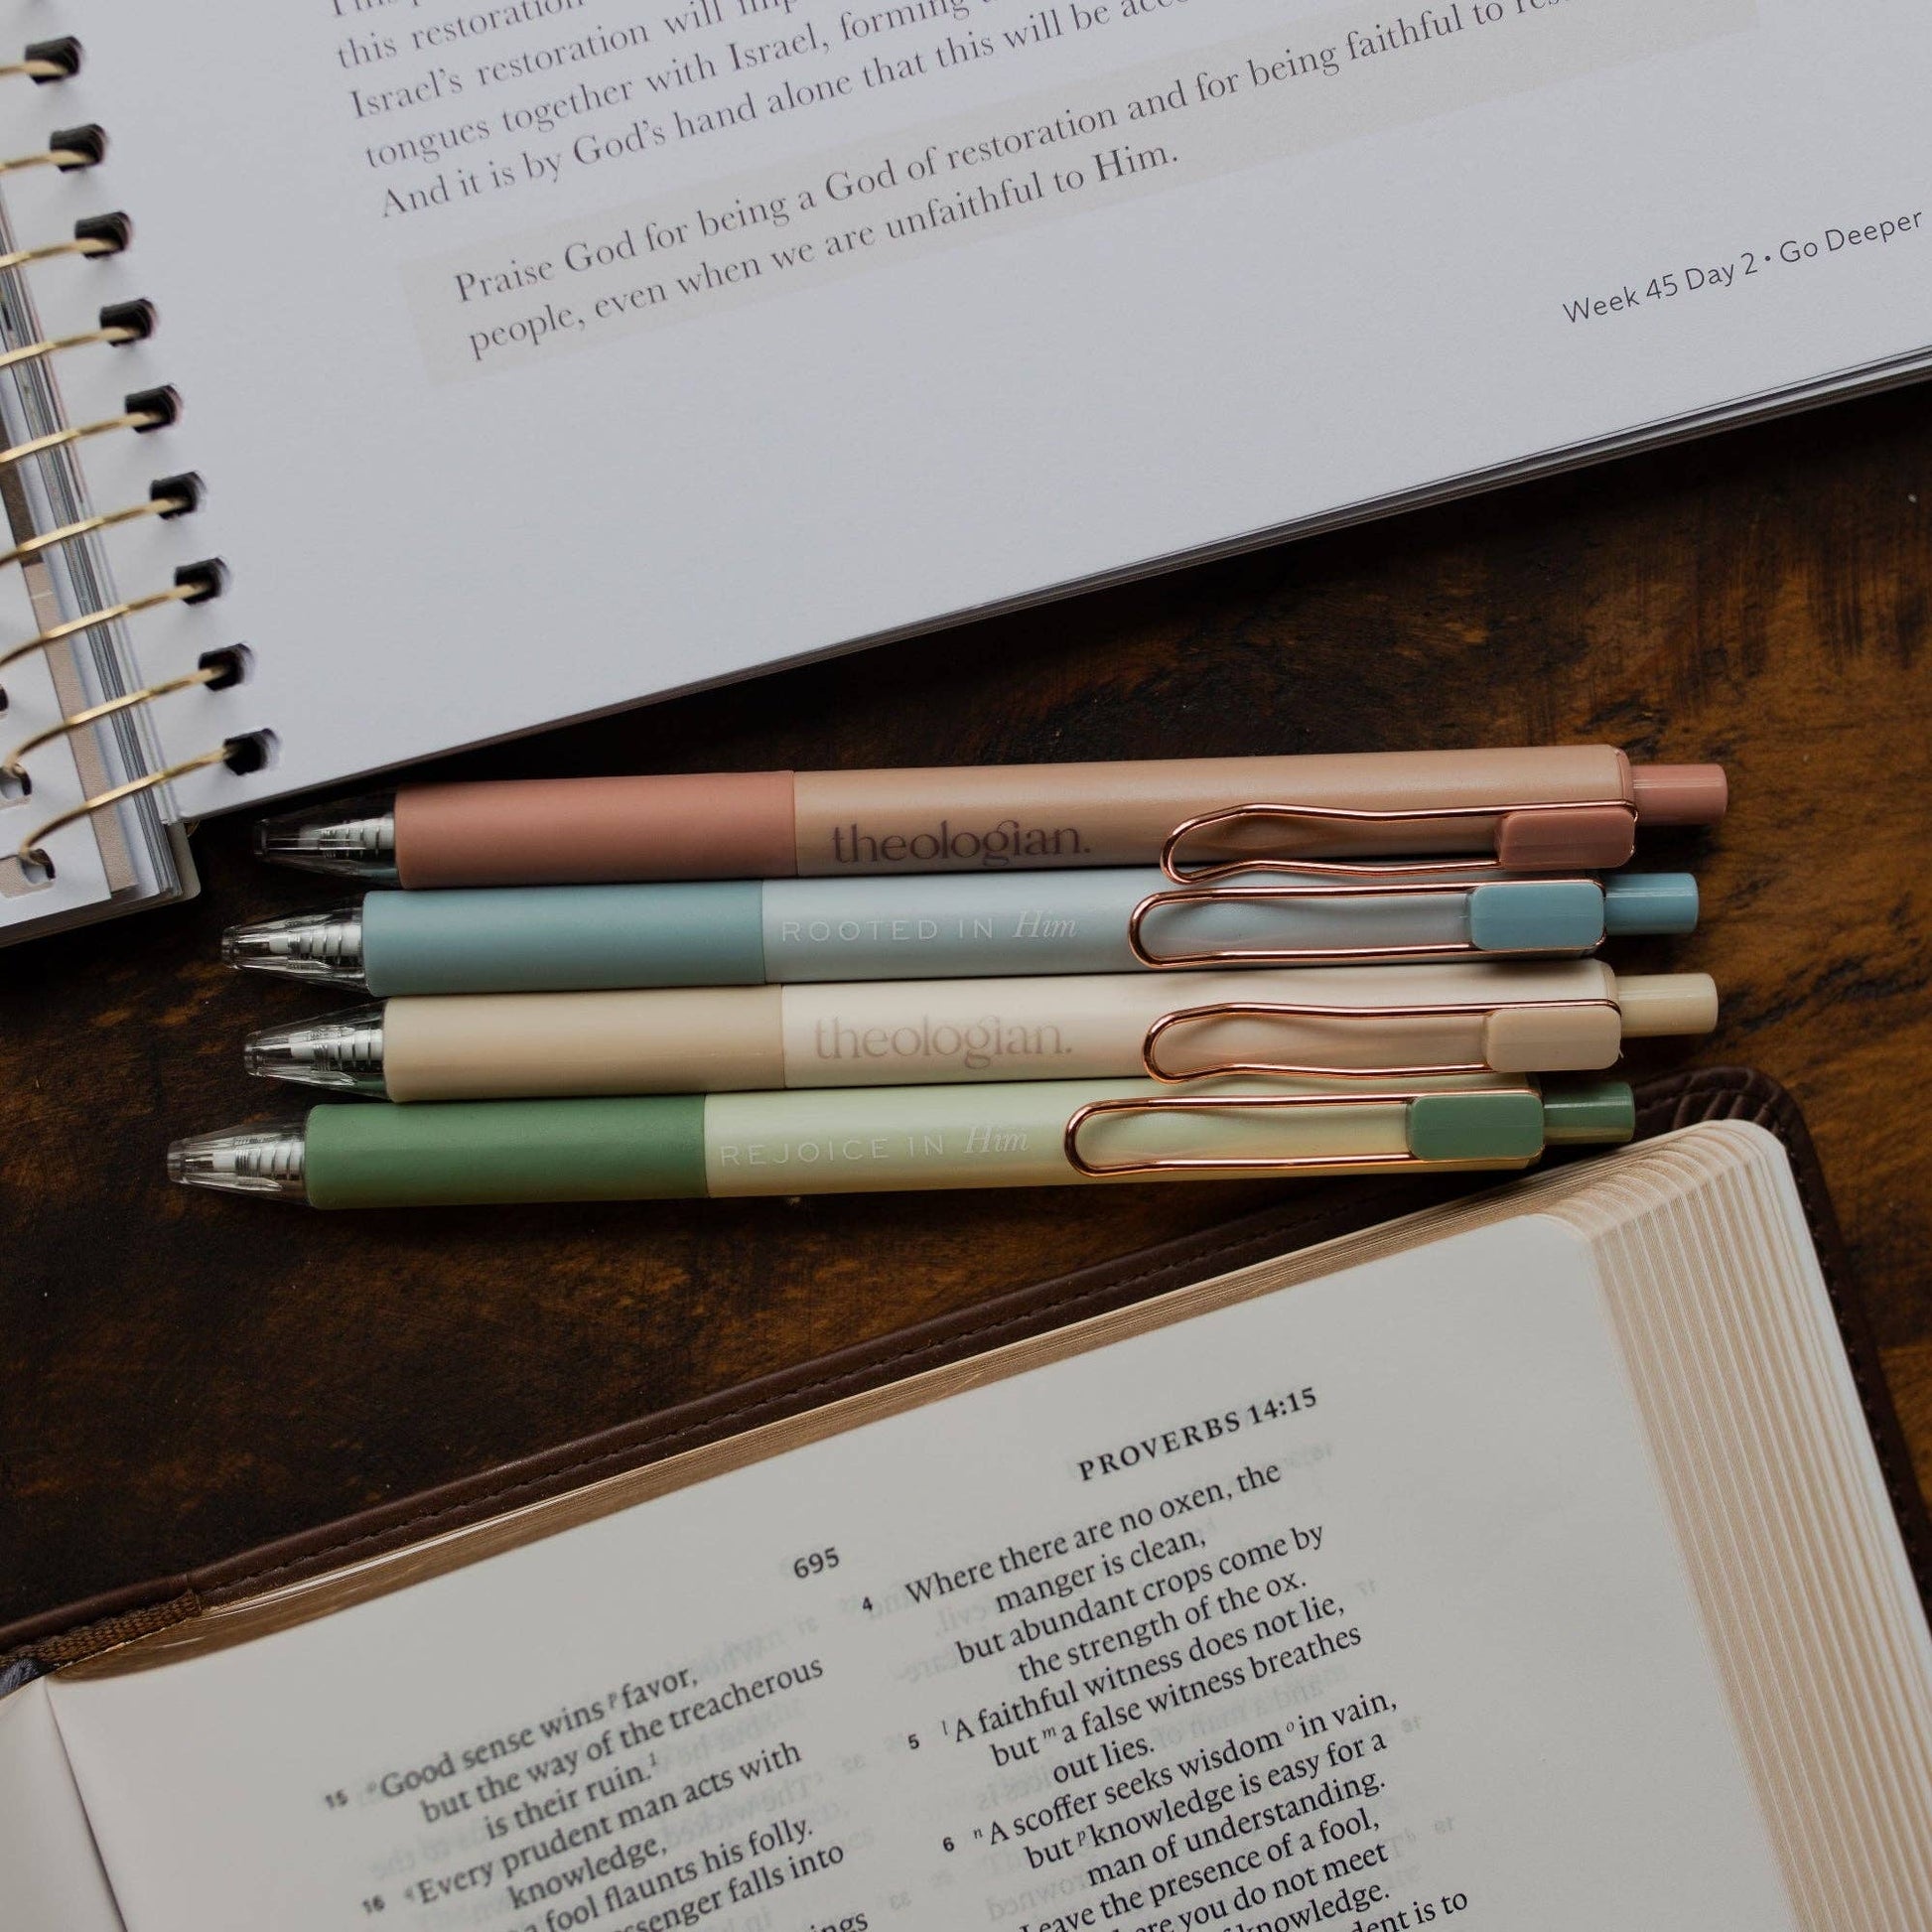 this restoration
Israel's restoration will
tongues together with Israel, forming
And it is by God's hand alone that this will be
Praise God for being a God of restoration and for being faithful to
people, even when we are unfaithful to Him.
Week 45 Day 2 • Go Deeper
theologian.
ROOTED IN Him
theologian.
REJOICE IN Him
695
PROVERBS 14:15
15 Good sense wins p favor,
but the way of the treacherous
is their ruin. 1
16 Every prudent man acts with
knowledge,
fool flaunts his folly.
falls into
4 Where there are no oxen, the
manger is clean,
but abundant crops come by
the strength of the ox.
5 l A faithful witness does not lie,
but m a false witness breathes
out lies.
6 n A scoffer seeks wisdom o in vain,
but p knowledge is easy for a
man of understanding.
Leave the presence of a fool,
you do not meet
knowledge.
is to